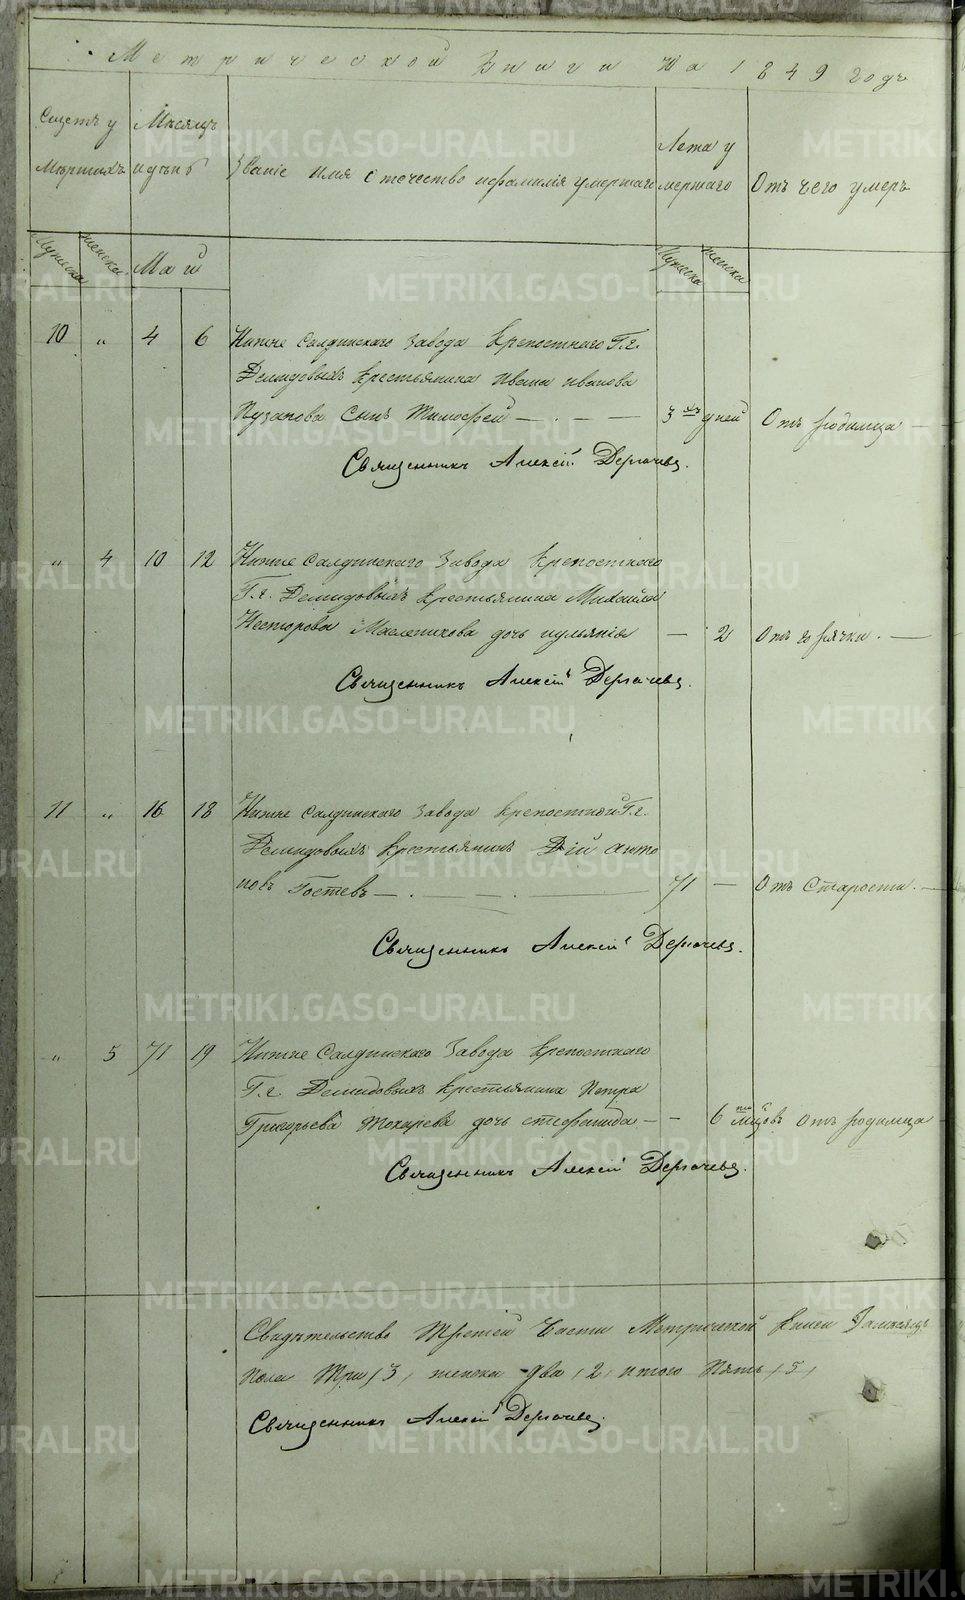 Метрической Книги на 1849 годъ
Счетъ у
мершихъ
Мѣсяцъ
и день
Званіе имя отечество и фамилія умершаго
Лета у
мершаго
Отъ чего умеръ
Мужеска
женска
Май
Мужеска
женска
10 „ 4 6 Нижне Салдинскаго Завода Крепостнаго Г.г.
Демидовыхъ Крестьянина Ивана Иванова
Пузанова Сынъ Тимофей — 3 хъ дней Отъ родимца —
Священникъ Алексій Дергачевъ.
„ 4 10 12 Нижне Салдинскаго Завода Крепостнаго
Г.г. Демидовыхъ Крестьянина Михаила
Несторова Масленикова дочь Иульянія — 2 Отъ горячки. —
Священникъ Алексій Дергачевъ.
11 „ 16 18 Нижне Салдинскаго Завода Крепостной Г.г.
Демидовыхъ Крестьянинъ Дій Анто
новъ Гостевъ — 71 — Отъ Старости. —
Священникъ Алексій Дергачевъ.
„ 5 71 19 Нижне Салдинскаго Завода Крепостнаго
Г.г. Демидовыхъ Крестьянина Петра
Григорьева Токарева дочь Стефанида — — 6 мцовъ Отъ родимца
Священникъ Алексій Дергачевъ.
Свидѣтельство Третей Части Метрической Книги
Пола Три /3/ женска два /2/ итого Пять /5/
Священникъ Алексій Дергачевъ.
METRIKI.GASO-URAL.RU